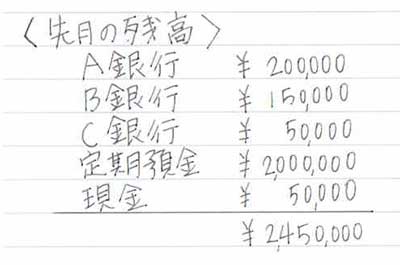 〈先月の残高〉
A銀行 ¥ 200,000
B銀行 ¥ 150,000
C銀行 ¥ 50,000
定期預金 ¥ 2,000,000
現金 ¥ 50,000
¥ 2,450,000